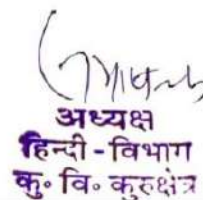 अध्यक्ष
हिन्दी - विभाग
कु॰ वि॰ कुरुक्षेत्र